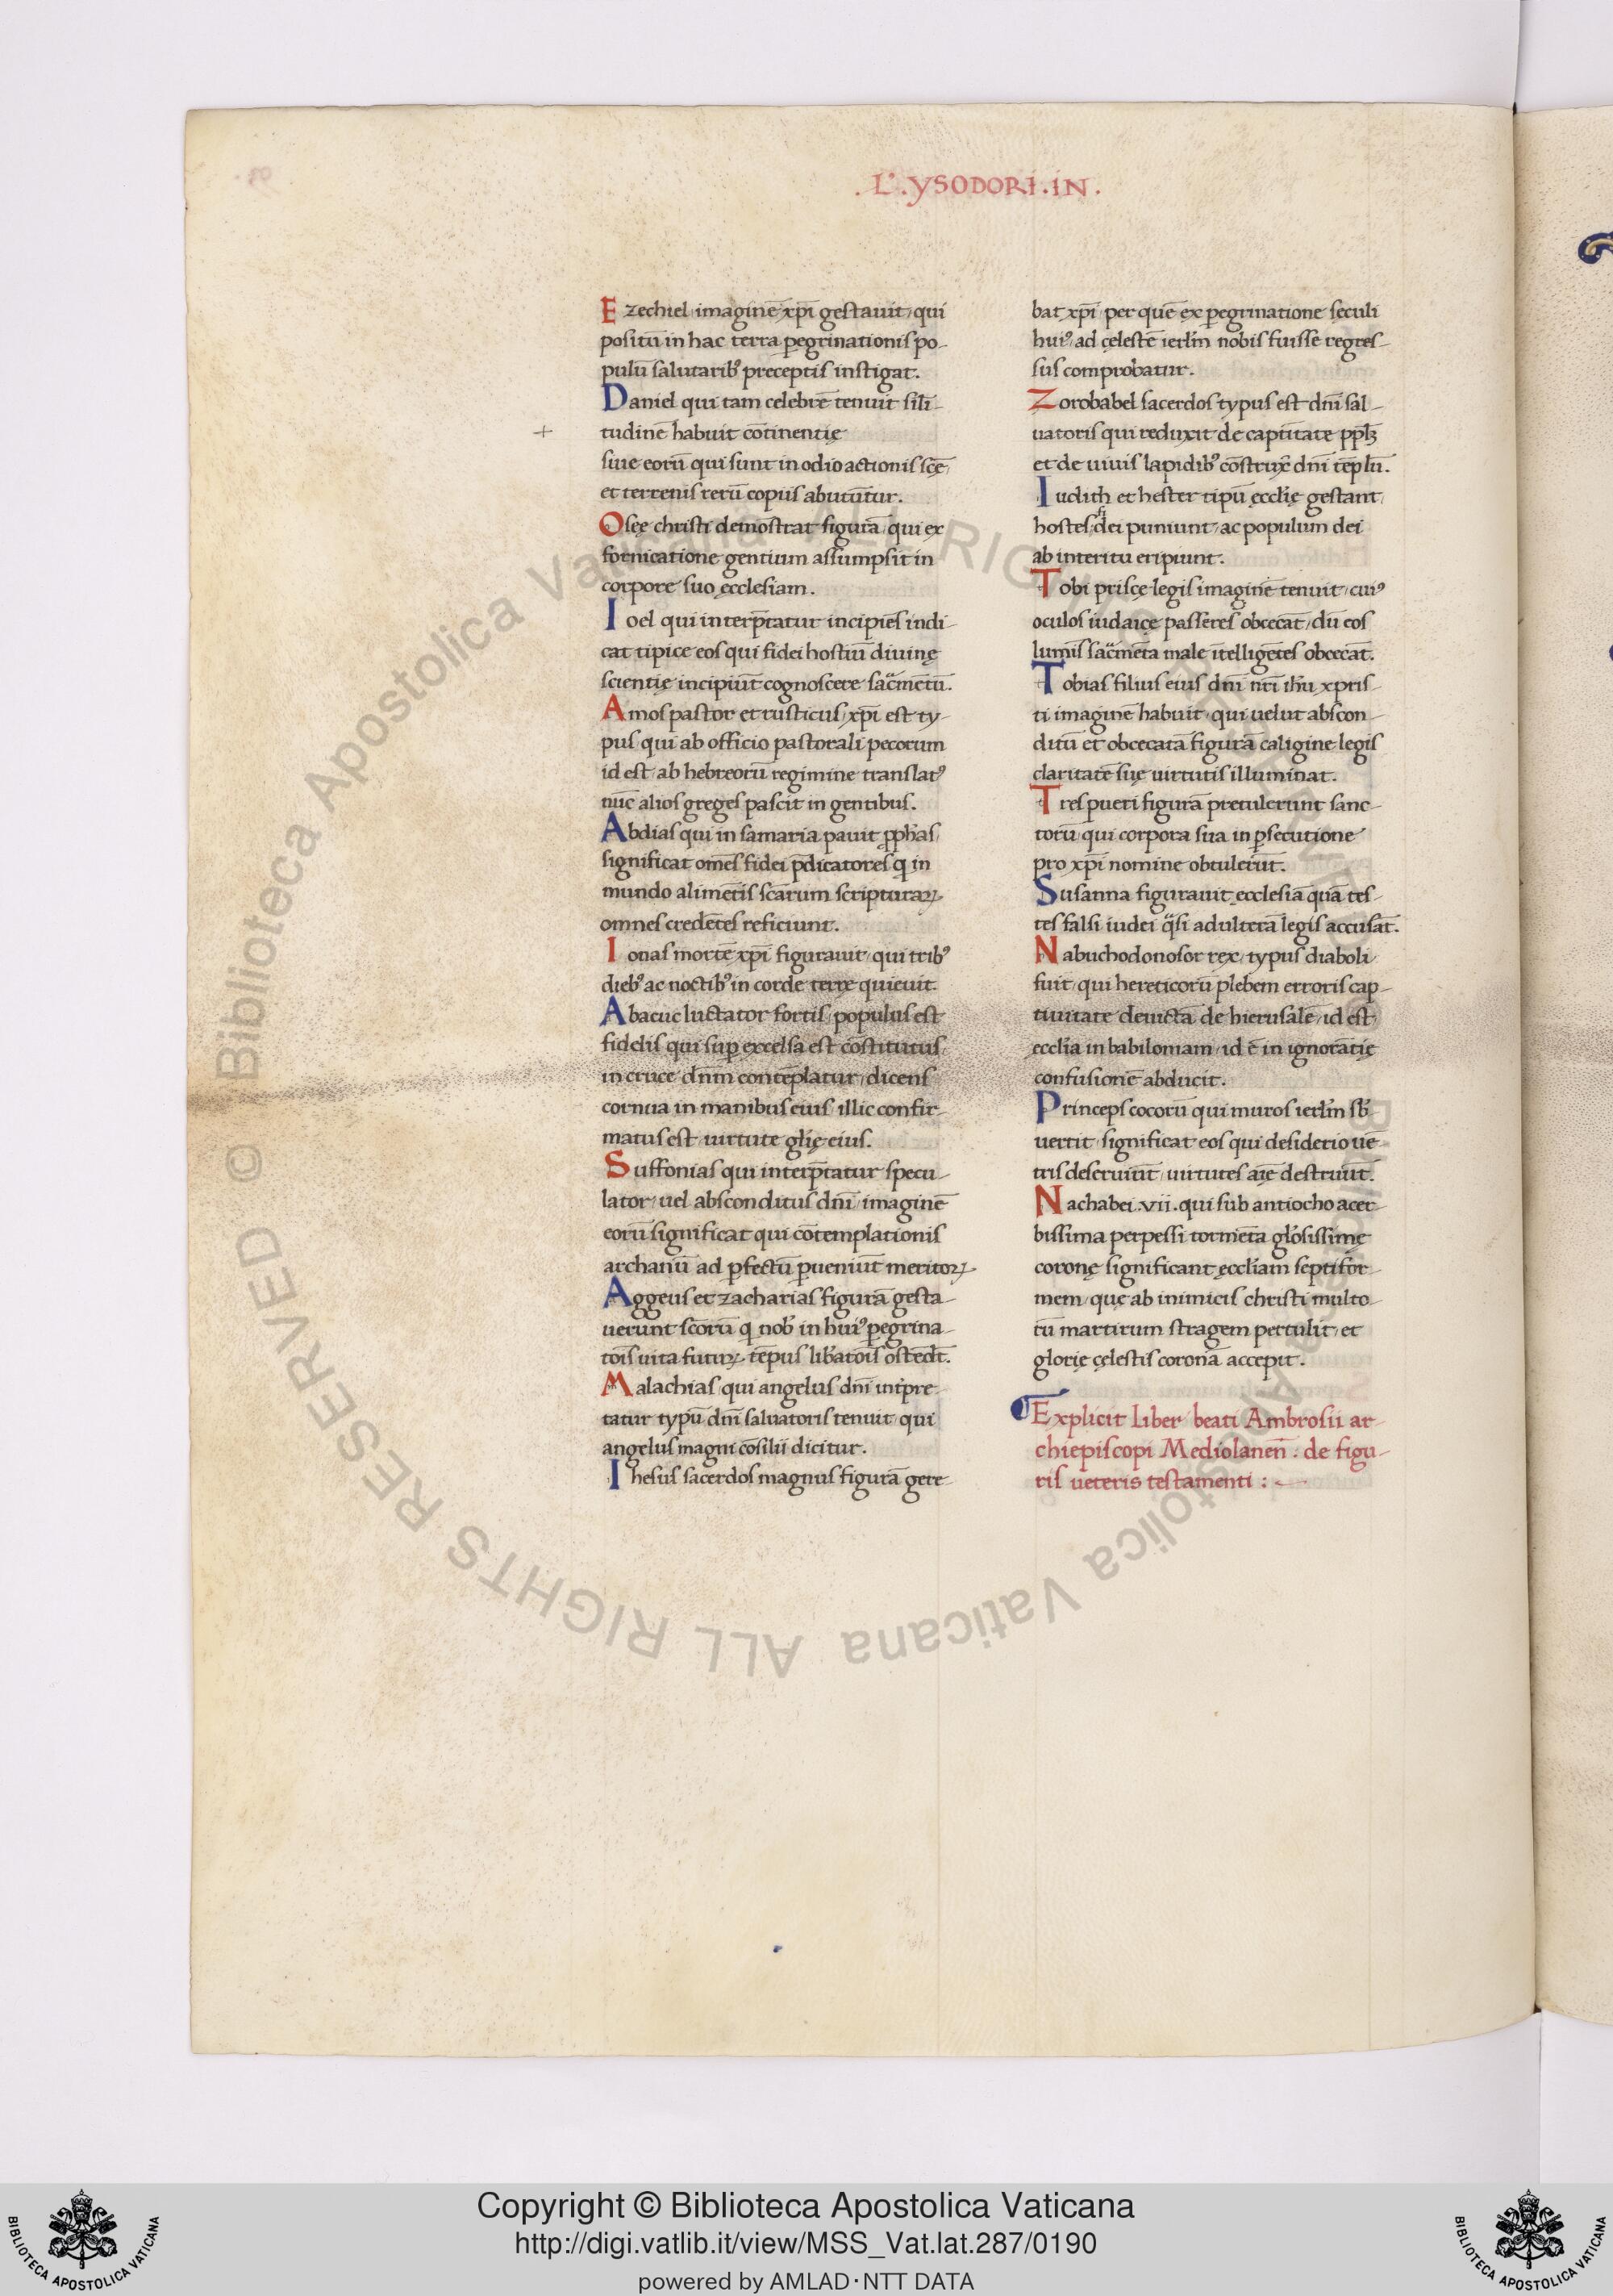 . L'. YSODORI. IN .
Ezechiel imaginē xp̄i gestauit, qui
positū in hac terra p̱egrinationis po-
pulū salutarib᾽ preceptis instigat.
Daniel qui tam celebrē tenuit sil̄i-
+ tudinē habuit cōtinentię
siue eorū qui sunt in odio actionis scē,
et terrenis rerū copiis abutūtur.
Osęe christi demōstrat figurā, qui ex
fornicatione gentium assumpsit in
corpore suo ęcclesiam.
Ioel qui interp̄tatur incipiēs indi-
cat tipice eos qui fidei hostiū diuinę
scientię incipiūt cognoscere sac̄mētū.
Amos pastor et rusticus, xp̄i est ty-
pus qui ab officio pastorali pecorum
id est ab hebreorū regimine translat᾽
nūc alios greges pascit in gentibus.
Abdias qui in samaria pauit ꝓph̄as,
significat om̄es fidei p̄dicatores q in
mundo alimētis scārum scripturaꝝ
omnes credētes reficiunt.
Ionas mortē xp̄i figurauit, qui trib᾽
dieb᾽ ac noctib᾽ in corde terre quieuit.
Abacuc luctator fortis, populus est
fidelis qui sup̱ excelsa est cōstitutus,
in cruce dn̄m contēplatur, dicens
cornua in manibus eius illic confir-
matus est uirtute gl̄ię eius.
Suffonias qui interp̄tatur specu-
lator, uel absconditus dn̄i, imaginē
eorū significat qui cōtemplationis
archanū ad p̱fectū p̱ueniūt meritoꝝ.
Aggeus et zacharias figurā gesta-
uerunt scōrū q nob̄ in hui᾽ p̱egrina-
tōis uita futuꝝ tēpus lib̄atōis ostēdt̄.
Malachias, qui angelus dn̄i int̄pre
tatur typū dn̄i saluatoris tenuit, qui
angelus magni cōsilii dicitur.
Ihesus sacerdos magnus figurā gere-
bat xp̄i per quē ex p̱egrinatione seculi
hui᾽ ad cęlestē ierl̄m nobis fuisse regres-
sus comprobatur.
Zorobabel sacerdos typus est dn̄i sal-
uatoris qui reduxit de captīitate ppl̄ꝫ
et de uiuis lapidib᾽ cōstrux̄ dn̄i tēplū.
Iudith et hester tipū ęccl̄ię gestant,
hostes fi dei puniunt, ac populum dei
ab interitu eripiunt.
Tobi priscę legis imaginē tenuit, cui᾽
oculos iudaicę passeres obcecāt, dū eos
lumīs sac̄mēta male ītelligētes obcecāt.
Tobias filius eius dn̄i nr̄i ih̄u xpris-
ti imaginē habuit, qui uelut abscon-
ditū et obcecatā figurā caligine legis
claritate suę uirtutis illuminat.
Tres pueri figurā pretulerunt sanc-
torū, qui corpora sua in p̱secutione
pro xp̄i nomine obtulerūt.
Susanna figurauit ęcclesiā quā tes-
tes falsi iudei q̄si adulterā legis accusāt.
Nabuchodonosor rex, typus diaboli
fuit, qui hereticorū plebem erroris cap-
tiuitate deuictā de hierusalē, id est
ęccl̄ia in babiloniam, id ē in ignorātię
confusionē abducit.
Princeps cocorū qui muros ierl̄m sb̄-
uertit, significat eos qui desiderio uē
tris deseruiūt uirtutes aīe destruūt.
Nachabei .vii. qui sub antiocho acer-
bissima perpessi tormēta gl̄osissimę
coronę significant ęccl̄iam septifor-
mem, que ab inimicis christi multo-
tū martirum stragem pertulit, et
glorię cęlestis coronā accepit.
Explicit Liber beati Ambrosii ar-
chiepiscopi Mediolanen̄ . de figu-
ris ueteris testamenti :
© Biblioteca Apostolica Vaticana ALL RIGHTS RESERVED
Copyright © Biblioteca Apostolica Vaticana
http://digi.vatlib.it/view/MSS_Vat.lat.287/0190
powered by AMLAD·NTT DATA
BIBLIOTECA APOSTOLICA VATICANA
BIBLIOTECA APOSTOLICA VATICANA